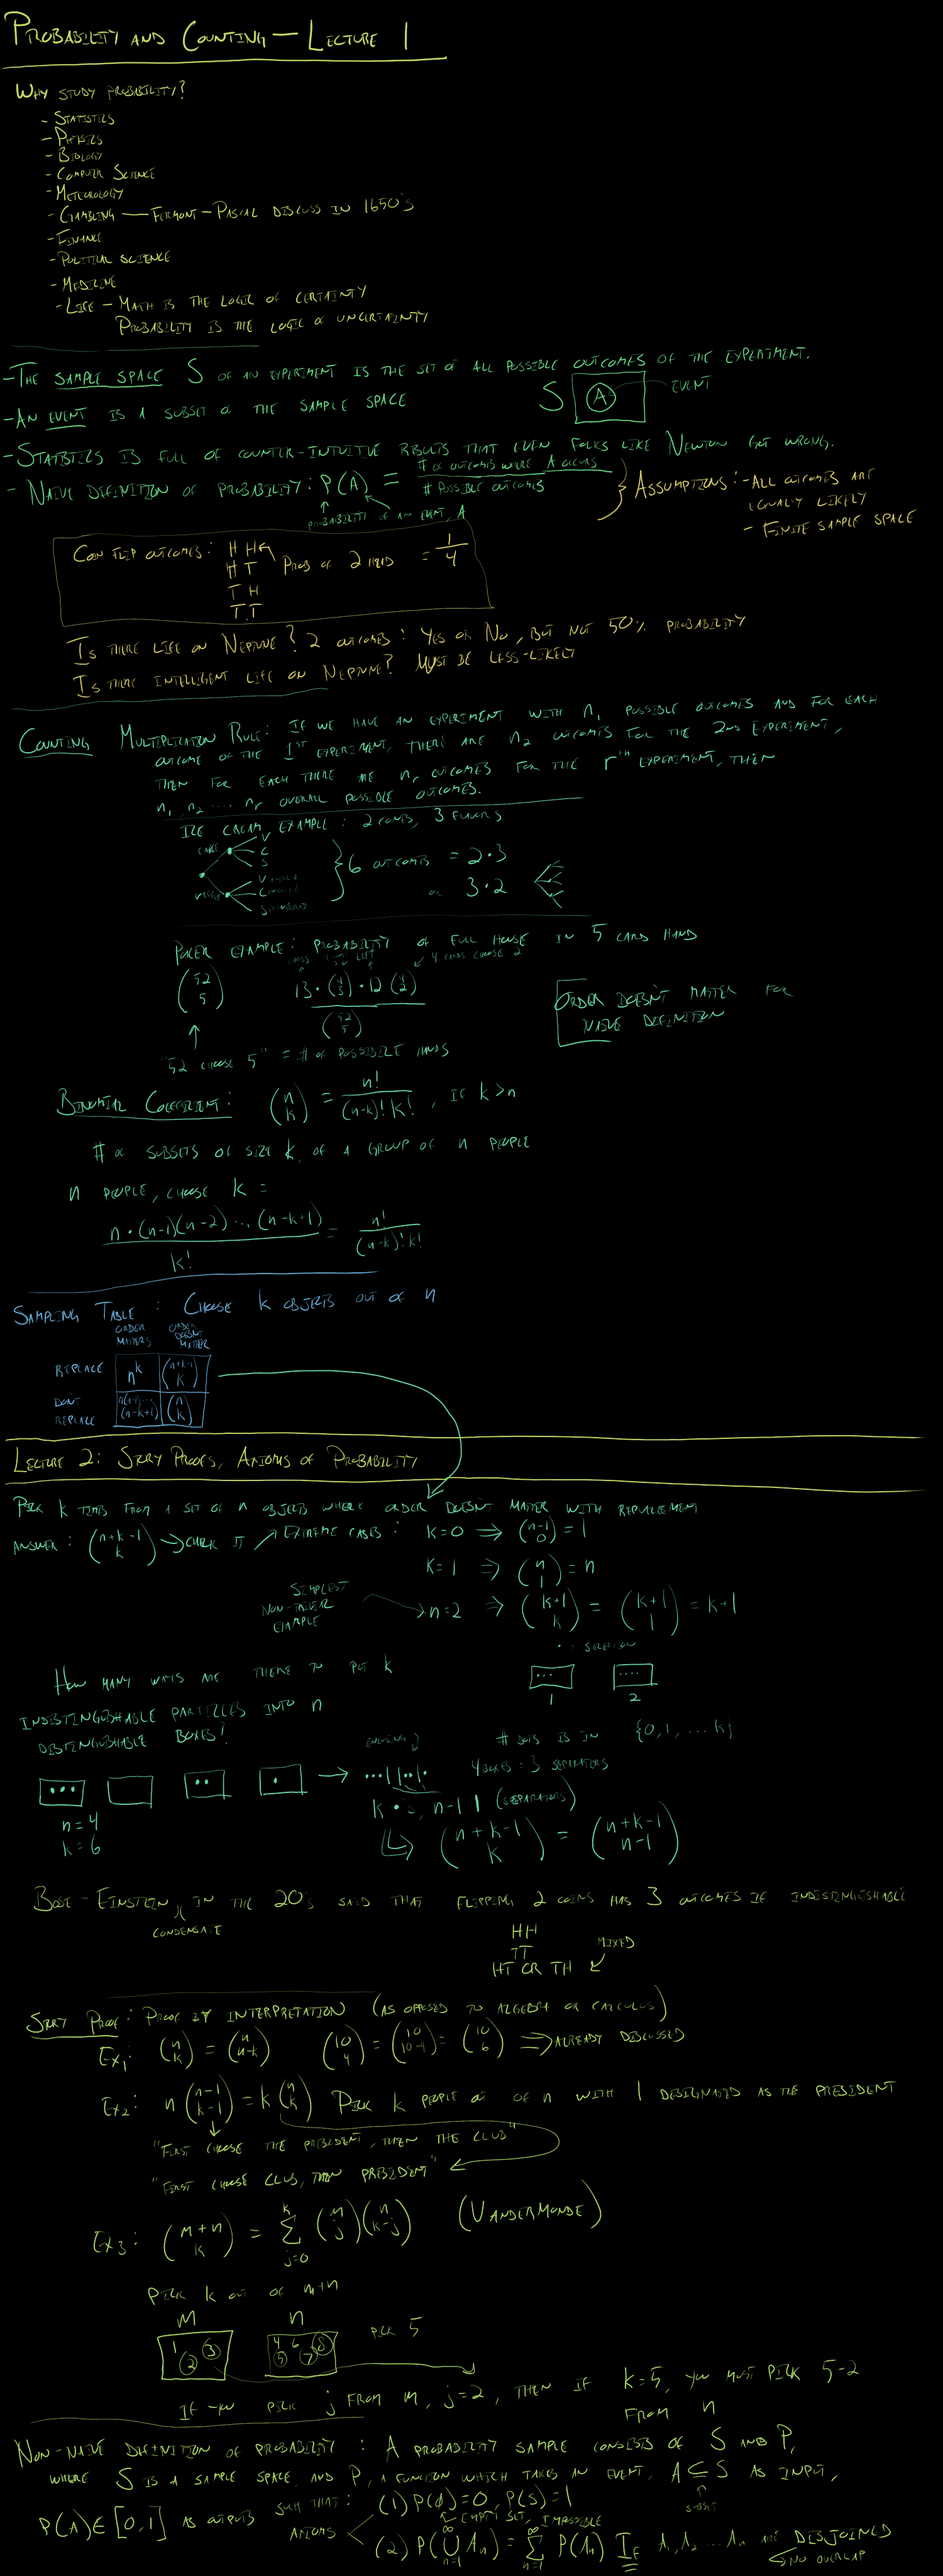 PROBABILITY AND COUNTING — LECTURE 1
WHY STUDY PROBABILITY?
- STATISTICS
- PHYSICS
- BIOLOGY
- COMPUTER SCIENCE
- METEOROLOGY
- GAMBLING — FERMONT - PASCAL DISCUSS IN 1650's
- FINANCE
- POLITICAL SCIENCE
- MEDICINE
- LIFE - MATH IS THE LOGIC OF CERTAINTY
PROBABILITY IS THE LOGIC OF UNCERTAINTY
- THE SAMPLE SPACE S OF AN EXPERIMENT IS THE SET OF ALL POSSIBLE OUTCOMES OF THE EXPERIMENT.
- AN EVENT IS A SUBSET OF THE SAMPLE SPACE
S A EVENT
- STATISTICS IS FULL OF COUNTER-INTUITIVE RESULTS THAT EVEN FOLKS LIKE NEWTON GOT WRONG.
- NAIVE DEFINITION OF PROBABILITY: P(A) = # OF OUTCOMES WHERE A OCCURS / # POSSIBLE OUTCOMES
PROBABILITY OF AN EVENT, A
ASSUMPTIONS: - ALL OUTCOMES ARE
EQUALLY LIKELY
- FINITE SAMPLE SPACE
COIN FLIP OUTCOMES: H H PROB OF 2 HEAD = 1/4
H T
T H
T T
IS THERE LIFE ON NEPTUNE? 2 OUTCOMES: YES OR NO, BUT NOT 50% PROBABILITY
IS THERE INTELLIGENT LIFE ON NEPTUNE? MUST BE LESS-LIKELY
COUNTING MULTIPLICATION RULE: IF WE HAVE AN EXPERIMENT WITH n₁ POSSIBLE OUTCOMES AND FOR EACH
OUTCOME OF THE 1ST EXPERIMENT, THERE ARE n₂ OUTCOMES FOR THE 2ND EXPERIMENT,
THEN FOR EACH THERE ARE nᵣ OUTCOMES FOR THE rᵗʰ EXPERIMENT, THEN
n₁ n₂ .... nᵣ OVERALL POSSIBLE OUTCOMES.
ICE CREAM EXAMPLE: 2 CONES, 3 FLAVORS
CAKE V
C
S
WAFFLE VANILLA
CHOCOLATE
STRAWBERRY
6 OUTCOMES = 2·3
OR 3·2
POKER EXAMPLE: PROBABILITY OF FULL HOUSE IN 5 CARD HAND
4 CARDS CHOOSE 2
(52 5) 13·(4 3)·12(4 2) / (52 5)
"52 CHOOSE 5" = # OF POSSIBLE HANDS
ORDER DOESN'T MATTER FOR
NAIVE DEFINITION
BINOMIAL COEFFICIENT: (n k) = n! / (n-k)! k! , IF k>n
# OF SUBSETS OF SIZE k, OF A GROUP OF n PEOPLE
n PEOPLE, CHOOSE k =
n·(n-1)(n-2)...(n-k+1) / k! = n! / (n-k)! k!
SAMPLING TABLE: CHOOSE k OBJECTS OUT OF n
ORDER MATTERS ORDER DOESN'T MATTER
REPLACE nᵏ (n+k-1 k)
DON'T REPLACE n(n-1)... (n-k+1) (n k)
LECTURE 2: STORY PROOFS, AXIOMS OF PROBABILITY
PICK k TIMES FROM A SET OF n OBJECTS WHERE ORDER DOESN'T MATTER WITH REPLACEMENT
ANSWER: (n+k-1 k) → CHECK IT EXTREME CASES: k=0 ⟹ (n-1 0) = 1
k=1 ⟹ (n 1) = n
SIMPLEST
NON-TRIVIAL
EXAMPLE
n=2 ⟹ (k+1 k) = (k+1 1) = k+1
• = SELECTION
1 2
# DOTS IS IN {0, 1, ... k}
HOW MANY WAYS ARE THERE TO PUT k
INDISTINGUISHABLE PARTICLES INTO n
DISTINGUISHABLE BOXES?
ENCODING
→ •••||••|•
4 BOXES = 3 SEPARATORS
n=4
k=6
k •'s, n-1 | (SEPARATORS)
(n+k-1 k) = (n+k-1 n-1)
BOSE-EINSTEIN IN THE 20's SAID THAT FLIPPING 2 COINS HAS 3 OUTCOMES IF INDISTINGUISHABLE
CONDENSATE
HH
TT
HT OR TH
MIXED
STORY PROOF: PROOF BY INTERPRETATION (AS OPPOSED TO ALGEBRA OR CALCULUS)
EX₁: (n k) = (n n-k) (10 4) = (10 10-4) = (10 6) ⟹ ALREADY DISCUSSED
EX₂: n(n-1 k-1) = k(n k) PICK k PEOPLE OUT OF n WITH 1 DESIGNATED AS THE PRESIDENT
"FIRST CHOOSE THE PRESIDENT, THEN THE CLUB"
"FIRST CHOOSE CLUB, THEN PRESIDENT"
EX₃: (m+n k) = Σ j=0 k (m j)(n k-j) (VANDERMONDE)
PICK k OUT OF m+n
m n
1 2 3 4 5 6 7 8 PICK 5
IF YOU PICK j FROM m, j=2, THEN IF k=5, YOU MUST PICK 5-2
FROM n
NON-NAIVE DEFINITION OF PROBABILITY: A PROBABILITY SAMPLE CONSISTS OF S AND P,
WHERE S IS A SAMPLE SPACE, AND P, A FUNCTION WHICH TAKES AN EVENT, A ⊆ S AS INPUT,
SUBSET
P(A) ∈ [0,1] AS OUTPUTS SUCH THAT: (1) P(∅)=0, P(S)=1
EMPTY SET, IMPOSSIBLE
AXIOMS
(2) P(⋃ n=1 ∞ Aₙ) = Σ n=1 ∞ P(Aₙ) IF A₁, A₂ ... Aₙ ARE DISJOINED
NO OVERLAP